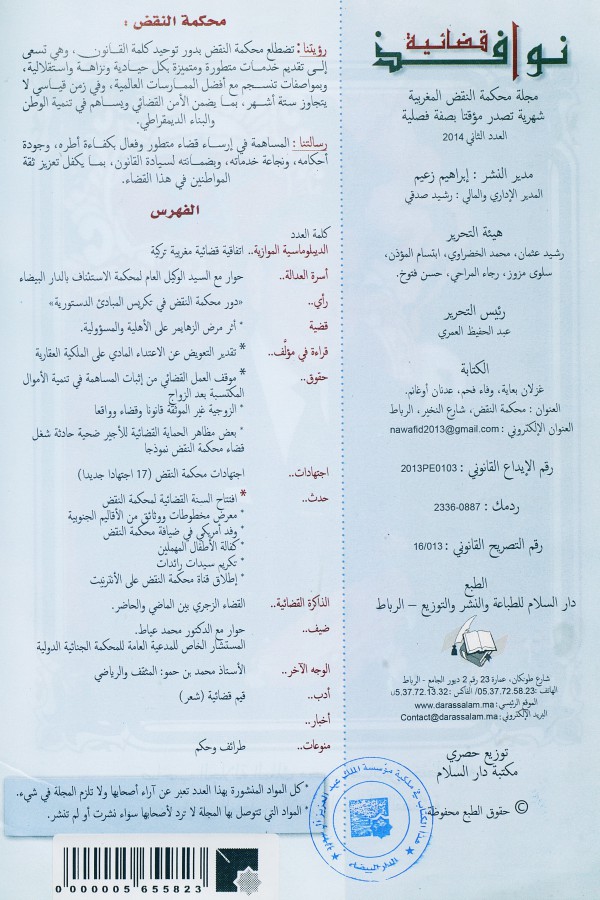 نوافذ قضائية
مجلة محكمة النقض المغربية
شهرية تصدر مؤقتا بصفة فصلية
العدد الثاني 2014
مدير النشر : إبراهيم زعيم
المدير الإداري والمالي : رشيد صدقي
هيئة التحرير
رشيد عثمان، محمد الخضراوي، ابتسام المؤذن،
سلوى مزوز، رجاء المراحي، حسن فتوخ.
رئيس التحرير
عبد الحفيظ العمري
الكتابة
غزلان بعاية، وفاء فحم، عدنان أوغانم.
العنوان : محكمة النقض، شارع النخير، الرباط
العنوان الإلكتروني : nawafid2013@gmail.com
رقم الإيداع القانوني : 2013PE0103
ردمك : 0887-2336
رقم التصريح القانوني : 16/013
الطبع
دار السلام للطباعة والنشر والتوزيع – الرباط
شارع طونكان، عمارة 23 رقم 2 ديور الجامع - الرباط
الهاتف :05.37.72.58.23/ الفاكس :05.37.72.13.32
الموقع الرئيسي: www.darassalam.ma
البريد الإلكتروني: Contact@darassalam.ma
توزيع حصري
مكتبة دار السلام
© حقوق الطبع محفوظة
محكمة النقض :
رؤيتنا : تضطلع محكمة النقض بدور توحيد كلمة القانون، وهي تسعى
إلى تقديم خدمات متطورة ومتميزة بكل حيادية ونزاهة واستقلالية،
وبمواصفات تنسجم مع أفضل الممارسات العالمية، وفي زمن قياسي لا
يتجاوز ستة أشهر، بما يضمن الأمن القضائي ويساهم في تنمية الوطن
والبناء الديمقراطي.
رسالتنا : المساهمة في إرساء قضاء متطور وفعال بكفاءة أطره، وجودة
أحكامه، ونجاعة خدماته، وبضمانته لسيادة القانون، بما يكفل تعزيز ثقة
المواطنين في هذا القضاء.
الفهرس
كلمة العدد
الديبلوماسية الموازية.. اتفاقية قضائية مغربية تركية
أسرة العدالة.. حوار مع السيد الوكيل العام لمحكمة الاستئناف بالدار البيضاء
رأي.. «دور محكمة النقض في تكريس المبادئ الدستورية»
قضية * أثر مرض الزهايمر على الأهلية والمسؤولية.
قراءة في مؤلَّف.. * تقدير التعويض عن الاعتداء المادي على الملكية العقارية
حقوق.. * موقف العمل القضائي من إثبات المساهمة في تنمية الأموال
المكتسبة بعد الزواج
* الزوجية غير الموثقة قانونا وقضاء وواقعا
* بعض مظاهر الحماية القضائية للأجير ضحية حادثة شغل
قضاء محكمة النقض نموذجا
اجتهادات.. اجتهادات محكمة النقض (17 اجتهادا جديدا)
حدث.. * افتتاح السنة القضائية لمحكمة النقض
* معرض مخطوطات ووثائق من الأقاليم الجنوبية
* وفد أمريكي في ضيافة محكمة النقض
* كفالة الأطفال المهملين
* تكريم سيدات رائدات
* إطلاق قناة محكمة النقض على الأنترنيت
الذاكرة القضائية.. القضاء الزجري بين الماضي والحاضر.
ضيف.. حوار مع الدكتور محمد عياط.
المستشار الخاص للمدعية العامة للمحكمة الجنائية الدولية
الوجه الآخر.. الأستاذ محمد بن حمو: المثقف والرياضي
أدب.. قيم قضائية (شعر)
أخبار..
منوعات.. طرائف وحكم
* كل المواد المنشورة بهذا العدد تعبر عن آراء أصحابها ولا تلزم المجلة في شيء.
* المواد التي تتوصل بها المجلة لا ترد لأصحابها سواء نشرت أو لم تنشر.
هذا الكتاب في ملكية مؤسسة الملك عبد العزيز
الدار البيضاء
0000005655823